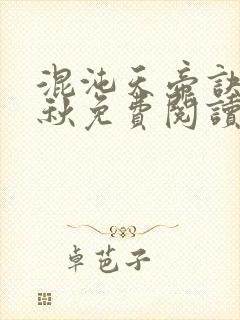 混沌天帝訣
秋免費閱讀
卓芭子